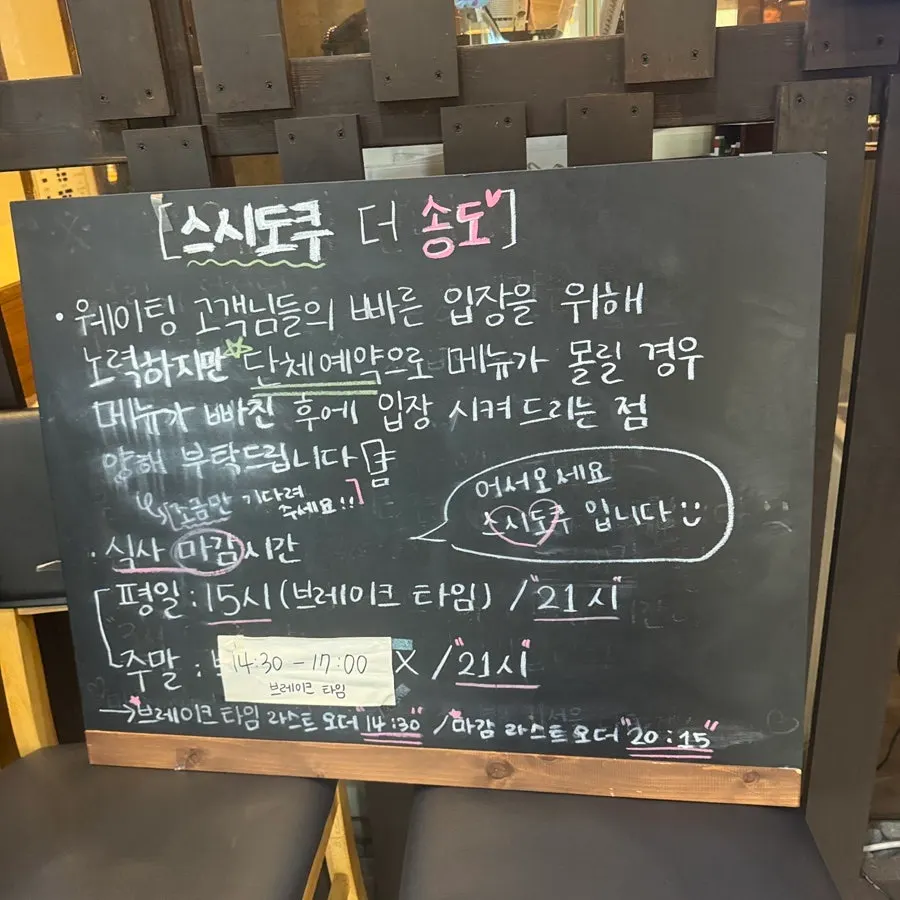 [스시도쿠 더 송도]
· 웨이팅 고객님들의 빠른 입장을 위해
노력하지만 단체예약으로 메뉴가 몰릴 경우
메뉴가 빠진 후에 입장 시켜드리는 점
양해 부탁드립니다
조금만 기다려
주세요!!
어서오세요
스시도쿠 입니다
· 식사 마감시간
평일 : 15시 (브레이크 타임) / "21시"
주말 : X / "21시"
14:30 - 17:00
브레이크 타임
→ 브레이크타임 라스트오더 "14:30" / 마감 라스트오더 "20:15"